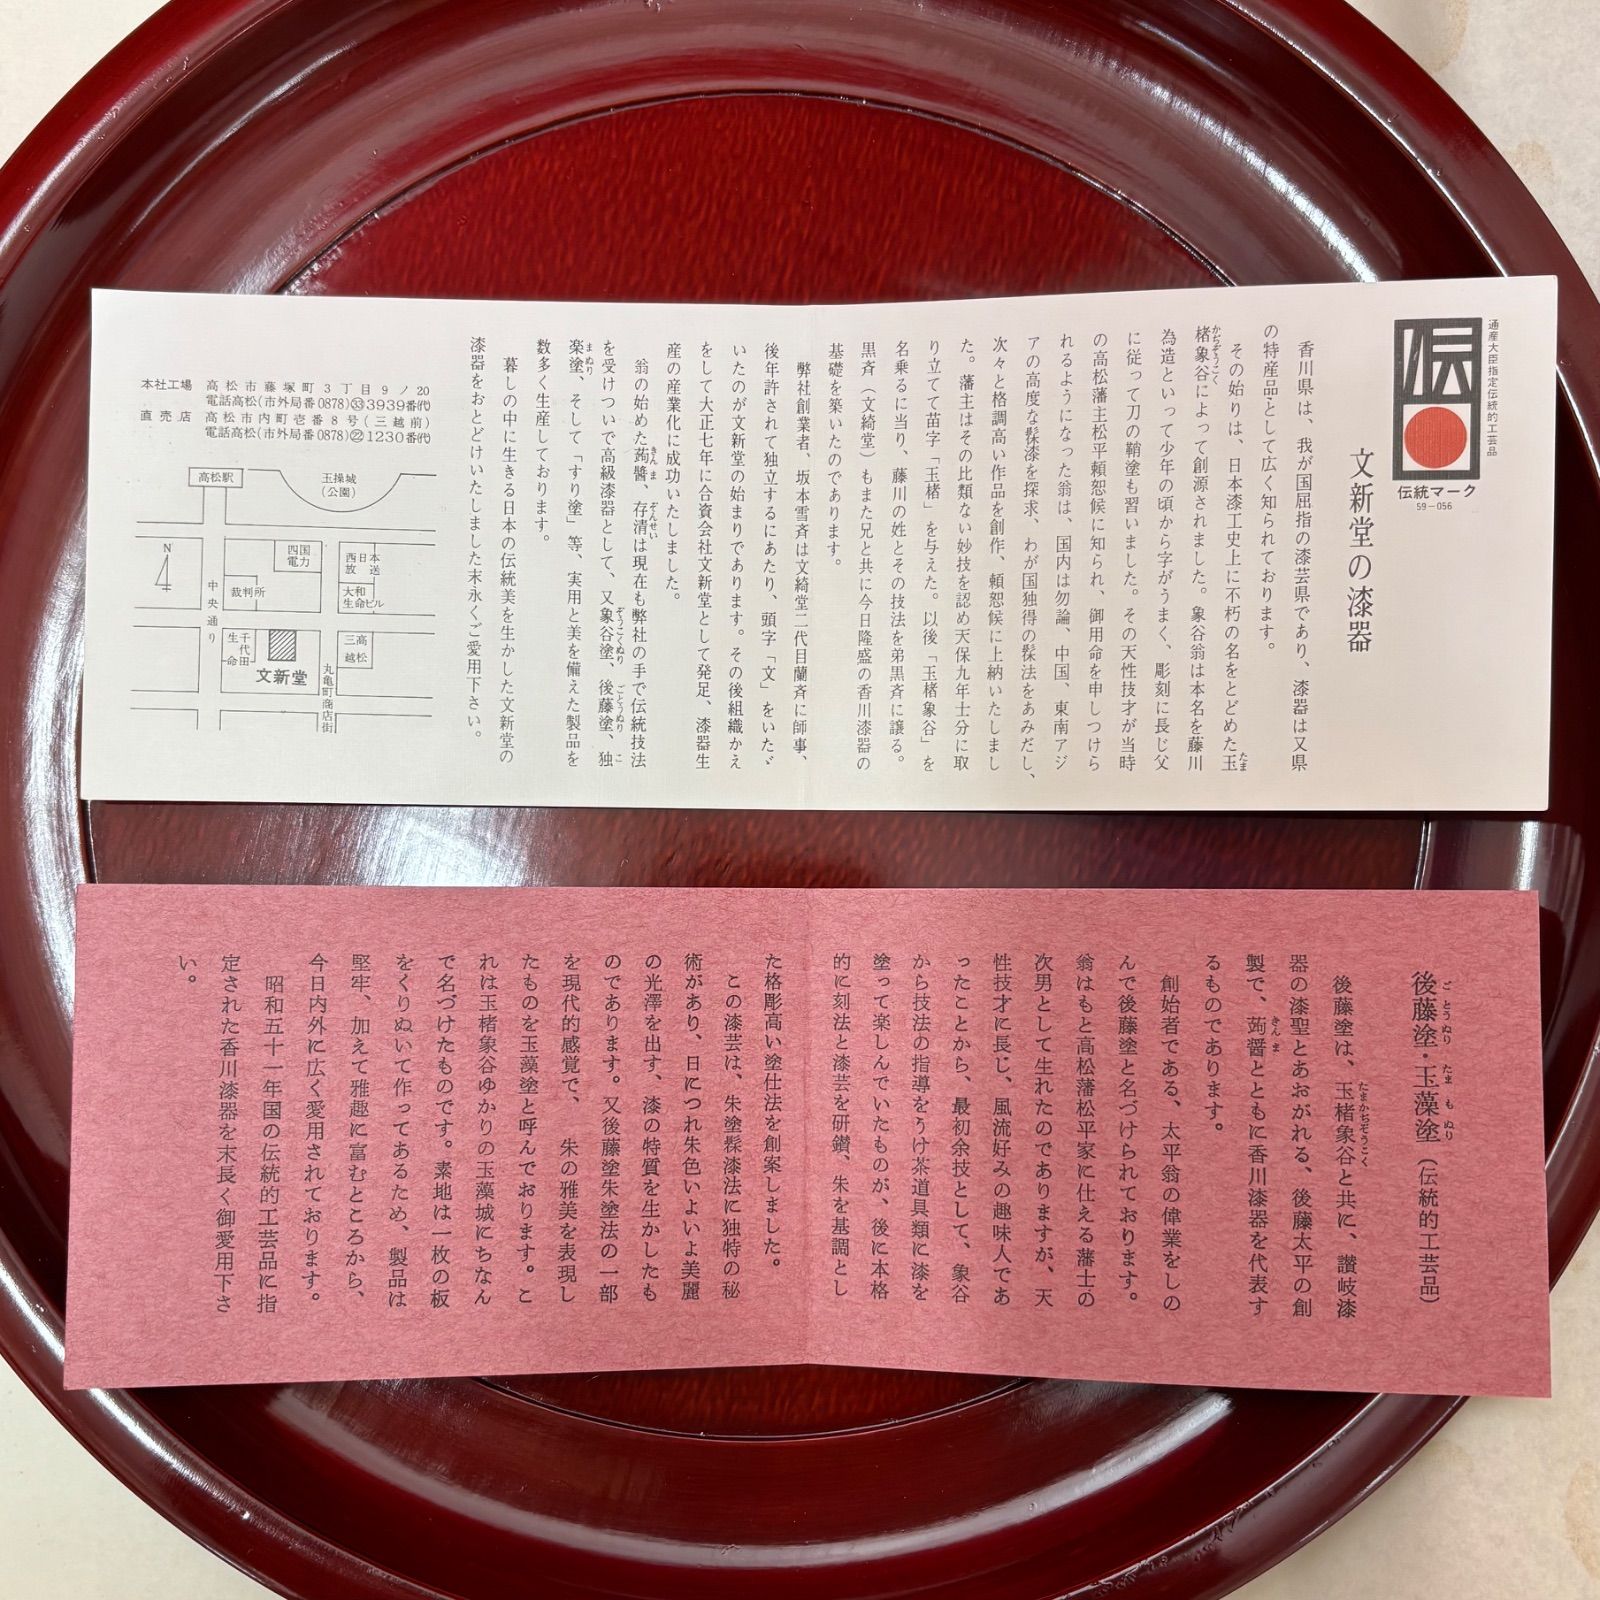 通産大臣指定伝統的工芸品
伝
伝統マーク
59－056
文新堂の漆器
香川県は、我が国屈指の漆芸県であり、漆器は又県
の特産品として広く知られております。
その始りは、日本漆工史上に不朽の名をとどめた玉
たま
楮象谷によって創源されました。象谷翁は本名を藤川
かぢぞうこく
為造といって少年の頃から字がうまく、彫刻に長じ父
に従って刀の鞘塗も習いました。その天性技才が当時
の高松藩主松平頼恕候に知られ、御用命を申しつけら
れるようになった翁は、国内は勿論、中国、東南アジ
アの高度な髹漆を探求、わが国独得の髹法をあみだし、
次々と格調高い作品を創作、頼恕候に上納いたしまし
た。藩主はその比類ない妙技を認め天保九年士分に取
り立てて苗字「玉楮」を与えた。以後「玉楮象谷」を
名乗るに当り、藤川の姓とその技法を弟黒斉に譲る。
黒斉（文綺堂）もまた兄と共に今日隆盛の香川漆器の
基礎を築いたのであります。
弊社創業者、坂本雪斉は文綺堂二代目蘭斉に師事、
後年許されて独立するにあたり、頭字「文」をいたゞ
いたのが文新堂の始まりであります。その後組織かえ
をして大正七年に合資会社文新堂として発足、漆器生
産の産業化に成功いたしました。
翁の始めた蒟醬、存清は現在も弊社の手で伝統技法
きんま ぞんせい
を受けついで高級漆器として、又象谷塗、後藤塗、独
ぞうこくぬり ごとうぬり こ
楽塗、そして「すり塗」等、実用と美を備えた製品を
まぬり
数多く生産しております。
暮しの中に生きる日本の伝統美を生かした文新堂の
漆器をおとどけいたしました末永くご愛用下さい。
本社工場 高松市藤塚町3丁目9ノ20
電話高松(市外局番0878)㉝3939番(代)
直売店 高松市内町壱番8号(三越前)
電話高松(市外局番0878)㉒1230番(代)
高松駅
玉操城
(公園)
N
四国
電力
西日本
放送
裁判所
大和
生命ビル
中央通り
千代田
生命
文新堂
高松
三越
丸亀町商店街
後藤塗・玉藻塗（伝統的工芸品）
ごとうぬり たまもぬり
後藤塗は、玉楮象谷と共に、讃岐漆
たまかぢぞうこく
器の漆聖とあおがれる、後藤太平の創
製で、蒟醤とともに香川漆器を代表す
きんま
るものであります。
創始者である、太平翁の偉業をしの
んで後藤塗と名づけられております。
翁はもと高松藩松平家に仕える藩士の
次男として生れたのでありますが、天
性技才に長じ、風流好みの趣味人であ
ったことから、最初余技として、象谷
から技法の指導をうけ茶道具類に漆を
塗って楽しんでいたものが、後に本格
的に刻法と漆芸を研鑚、朱を基調とし
た格彫高い塗仕法を創案しました。
この漆芸は、朱塗髹漆法に独特の秘
術があり、日につれ朱色いよいよ美麗
の光澤を出す、漆の特質を生かしたも
のであります。又後藤塗朱塗法の一部
を現代的感覚で、朱の雅美を表現し
たものを玉藻塗と呼んでおります。こ
れは玉楮象谷ゆかりの玉藻城にちなん
で名づけたものです。素地は一枚の板
をくりぬいて作ってあるため、製品は
堅牢、加えて雅趣に富むところから、
今日内外に広く愛用されております。
昭和五十一年国の伝統的工芸品に指
定された香川漆器を末長く御愛用下さ
い。